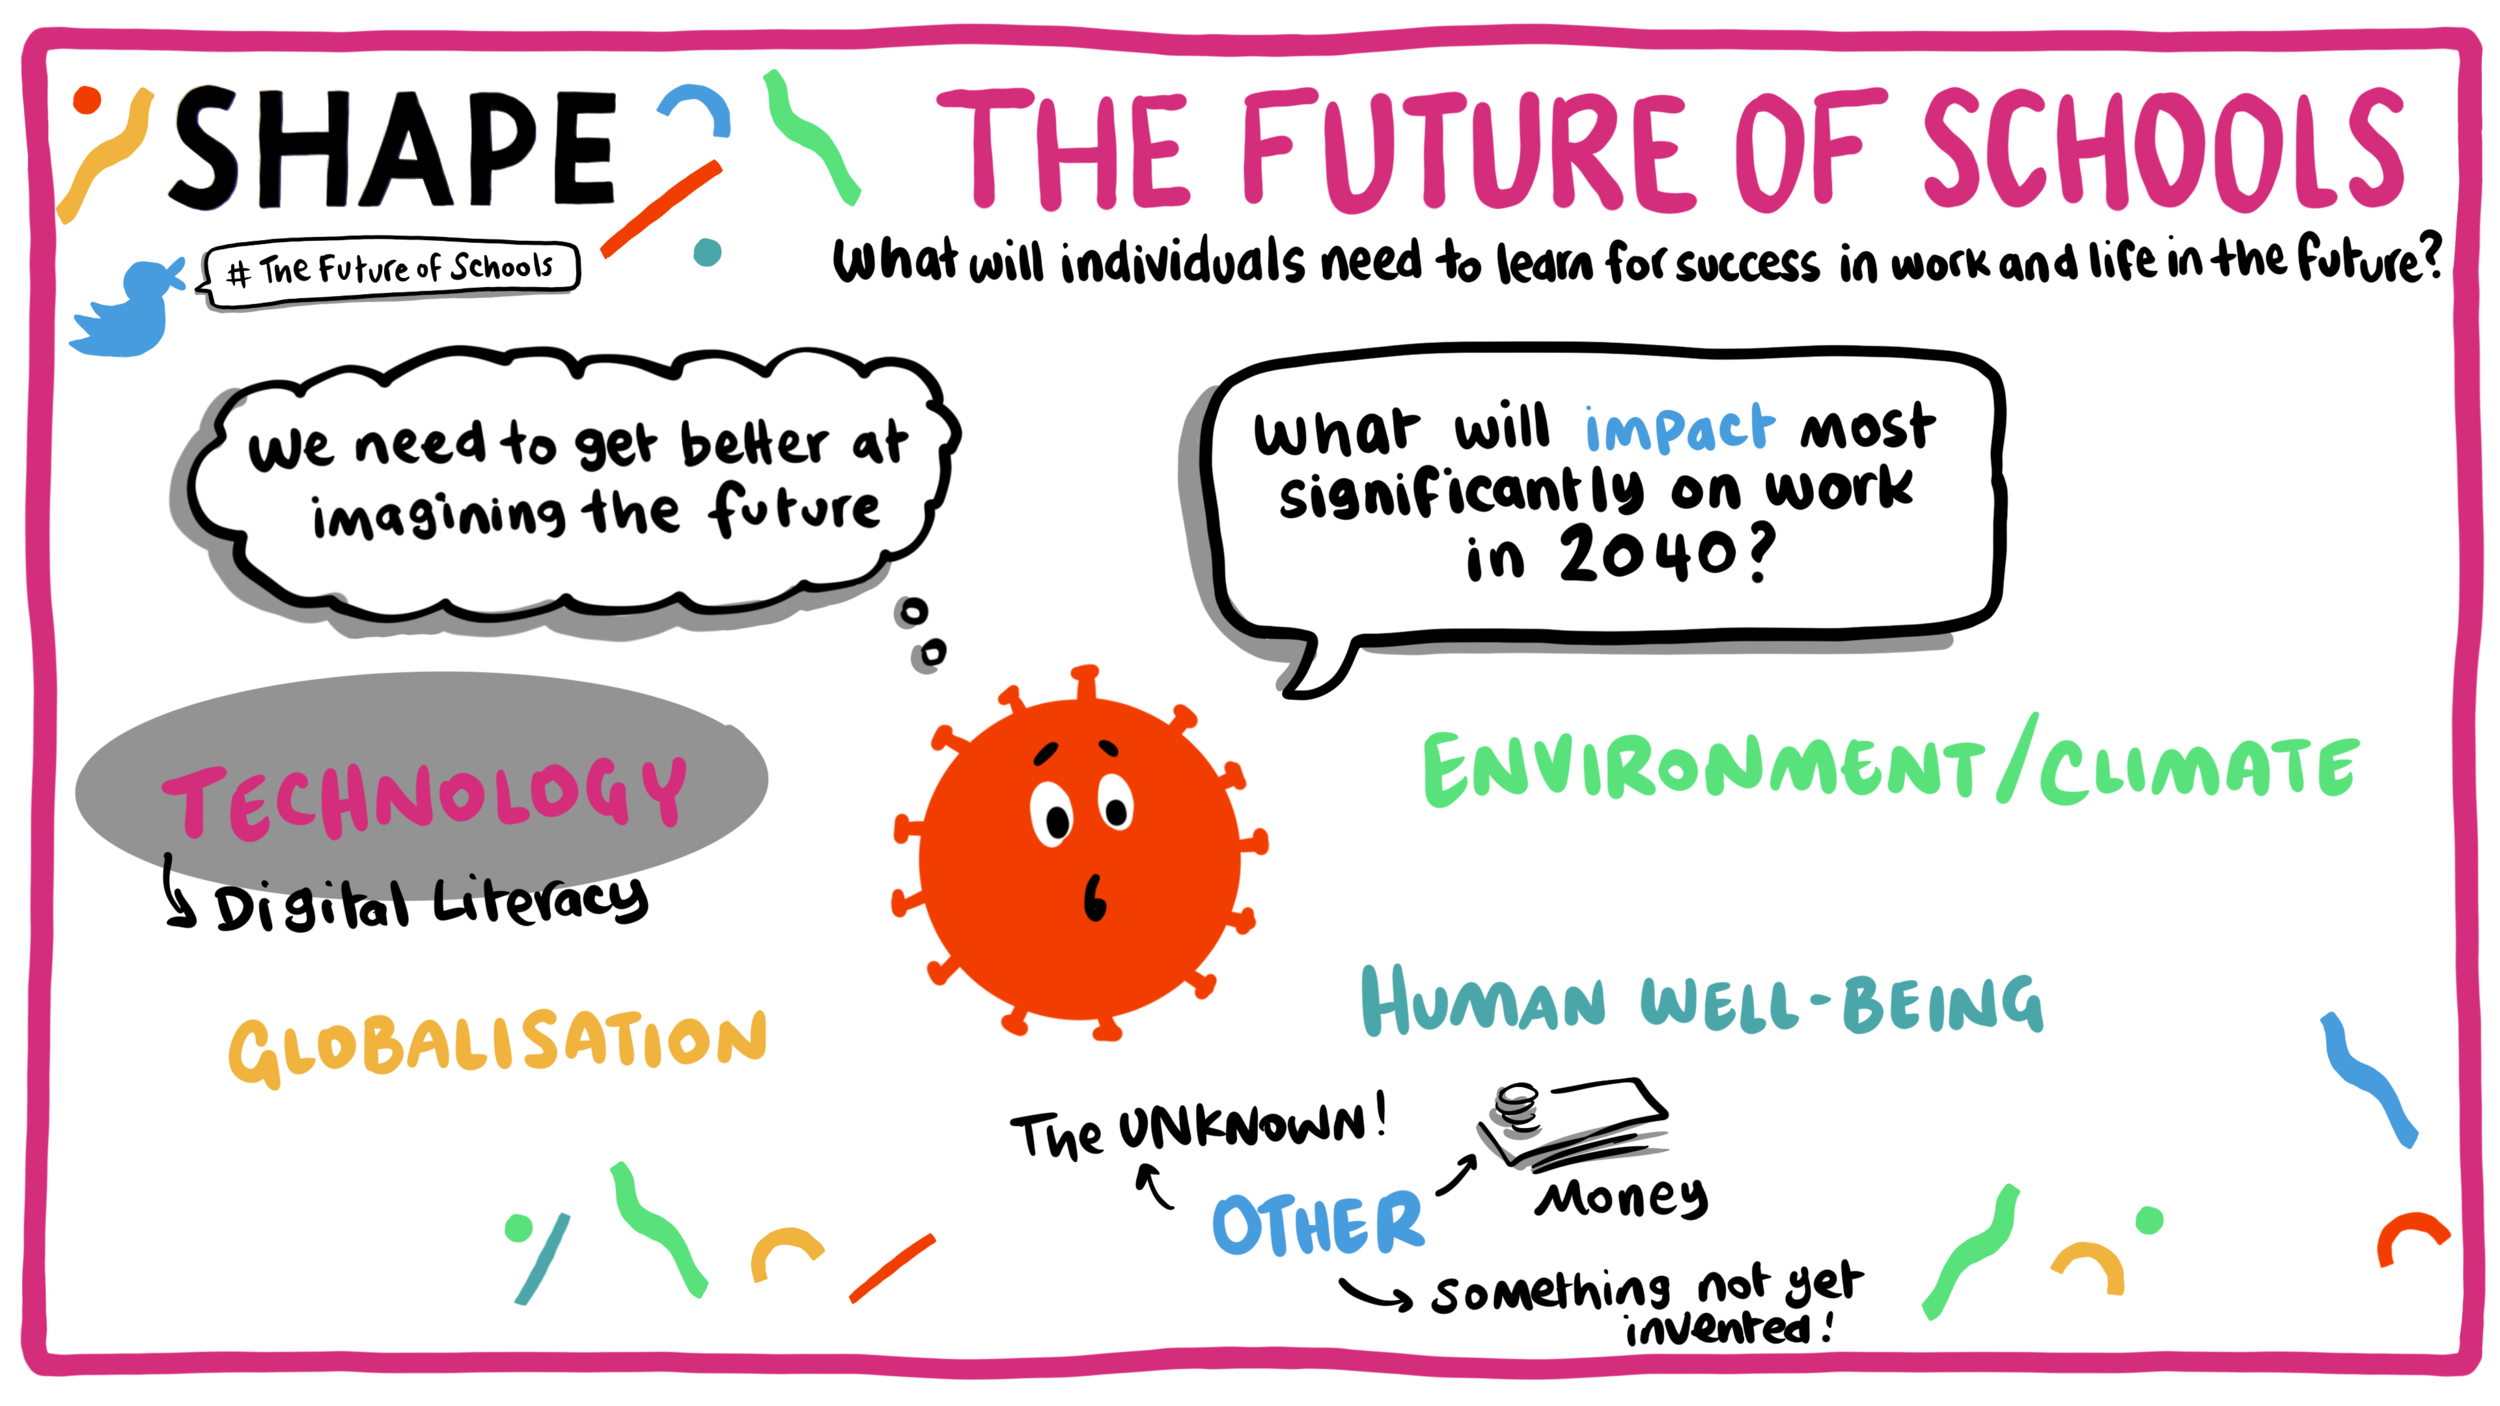 SHAPE
THE FUTURE OF SCHOOLS
# The Future of Schools
What will individuals need to learn for success in work and life in the future?
We need to get better at
imagining the future
What will impact most
significantly on work
in 2040?
TECHNOLOGY
Digital Literacy
ENVIRONMENT/CLIMATE
GLOBALISATION
HUMAN WELL-BEING
The UNKNOWN!
OTHER
Money
something not yet
invented!